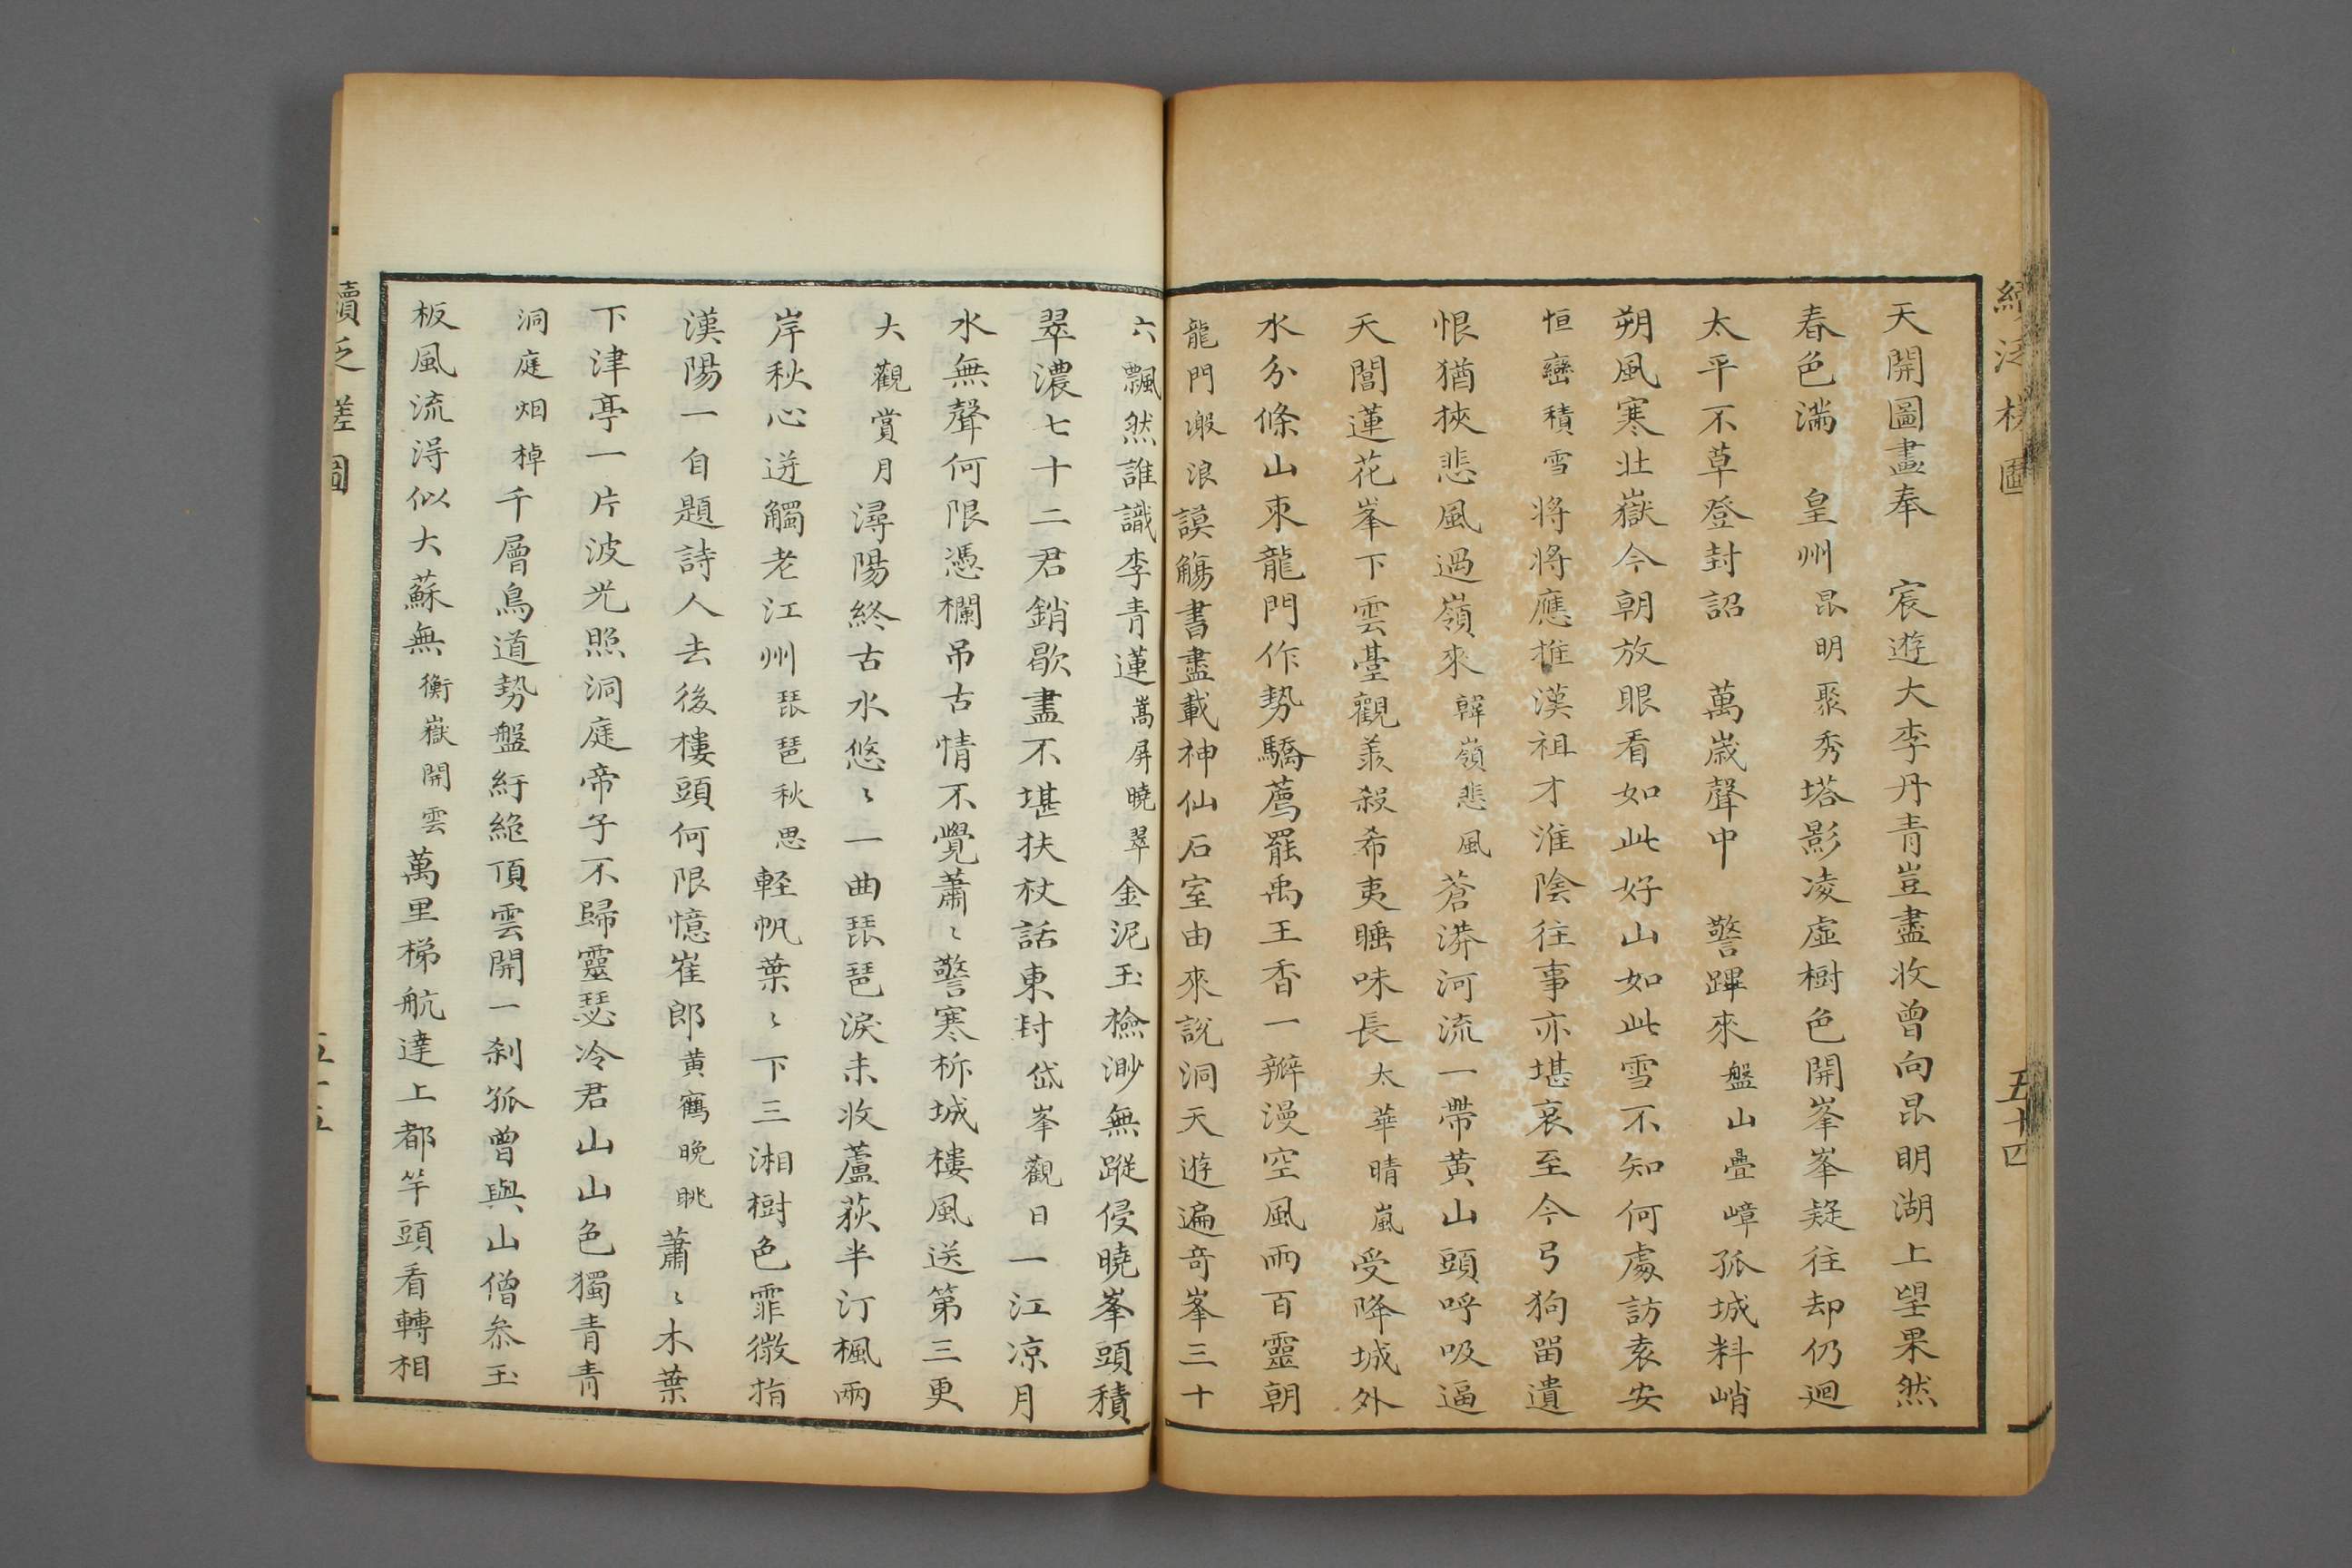 天開圖畫奉　宸遊大李丹青豈盡收曾向昆明湖上望果然
春色滿　皇州昆明聚秀塔影凌虛樹色開峯峯疑往却仍迴
太平不草登封詔　萬歲聲中　警蹕來盤山疊嶂孤城料峭
朔風寒北嶽今朝放眼看如此好山如此雪不知何處訪袁安
恒巒積雪將將應推漢祖才淮陰往事亦堪哀至今弓狗留遺
恨猶挾悲風過嶺來韓嶺悲風蒼漭河流一帶黃山頭呼吸逼
天閶蓮花峯下雲臺觀羨殺希夷睡味長太華晴嵐受降城外
水分條山束龍門作勢驕薦罷禹王香一瓣漫空風雨百靈朝
龍門激浪謨觴書盡載神仙石室由來說洞天遊遍奇峯三十
續泛槎圖
五十四
六飄然誰識李青蓮嵩屏曉翠金泥玉檢渺無蹤侵曉峯頭積
翠濃七十二君銷歇盡不堪扶杖話東封岱峯觀日一江凉月
水無聲何限憑欄吊古情不覺蕭〻警寒柝城樓風送第三更
大觀賞月潯陽終古水悠〻一曲琵琶淚未收蘆荻半汀楓兩
岸秋心迸觸老江州琵琶秋思輕帆葉〻下三湘樹色霏微指
漢陽一自題詩人去後樓頭何限憶崔郎黃鶴晚眺蕭〻木葉
下津亭一片波光照洞庭帝子不歸靈瑟冷君山山色獨青青
洞庭烟棹千層鳥道勢盤紆絶頂雲開一刹孤曾與山僧叅玉
板風流淂似大蘇無衡嶽開雲萬里梯航達上都竿頭看轉相
續泛槎圖
五十五